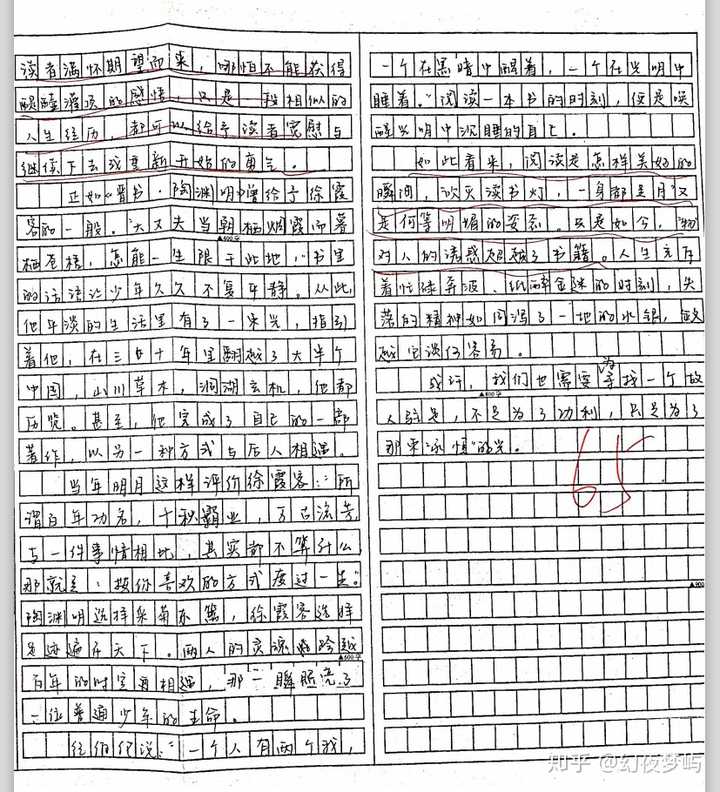 读者满怀期望而来，哪怕不能获得
醍醐灌顶的感悟，只是一段相似的
人生经历，都可以给予读者宽慰与
继续下去或重新开始的勇气。
正如《晋书·陶渊明》曾给予徐霞
客的一般。“大丈夫当朝栖烟霞而暮
栖苍梧，怎能一生限于此地”，书里
的话语让少年久久不复平静。从此
他平淡的生活里有了一束光，指引
着他，在三四十年里翻越了大半个
中国，山川草木，洞湖玄机，他都
历览。甚至，他完成了自己的一部
著作，以另一种方式与后人相遇。
当年明月这样评价徐霞客：“所
谓百年功名，千秋霸业，万古流芳
与一件事情相比，其实都不算什么
那就是：按你喜欢的方式度过一生。”
陶渊明选择采菊东篱，徐霞客选择
足迹遍布天下。两人的灵魂跨越
百年的时空再相遇，那一瞬照亮了
一位普通少年的生命。
纪伯伦说：“一个人有两个我，
▲600字
一个在黑暗中醒着，一个在光明中
睡着。”阅读一本书的时刻，便是唤
醒光明中沉睡的自己。
如此看来，阅读是怎样美好的
瞬间，“吹灭读书灯，一身都是月”又
是何等明媚的姿态。只是如今，物
对人的诱惑超越了书籍。人生充斥
着忙碌奔波、纸醉金迷的时刻，失
落的精神如同泻了一地的水银，
越它谈何容易。
或许，我们也需要为寻找一个故
人驻足，不是为了功利，只是为了
那束“永恒”的光。
65
▲900
知乎 @幻夜梦屿